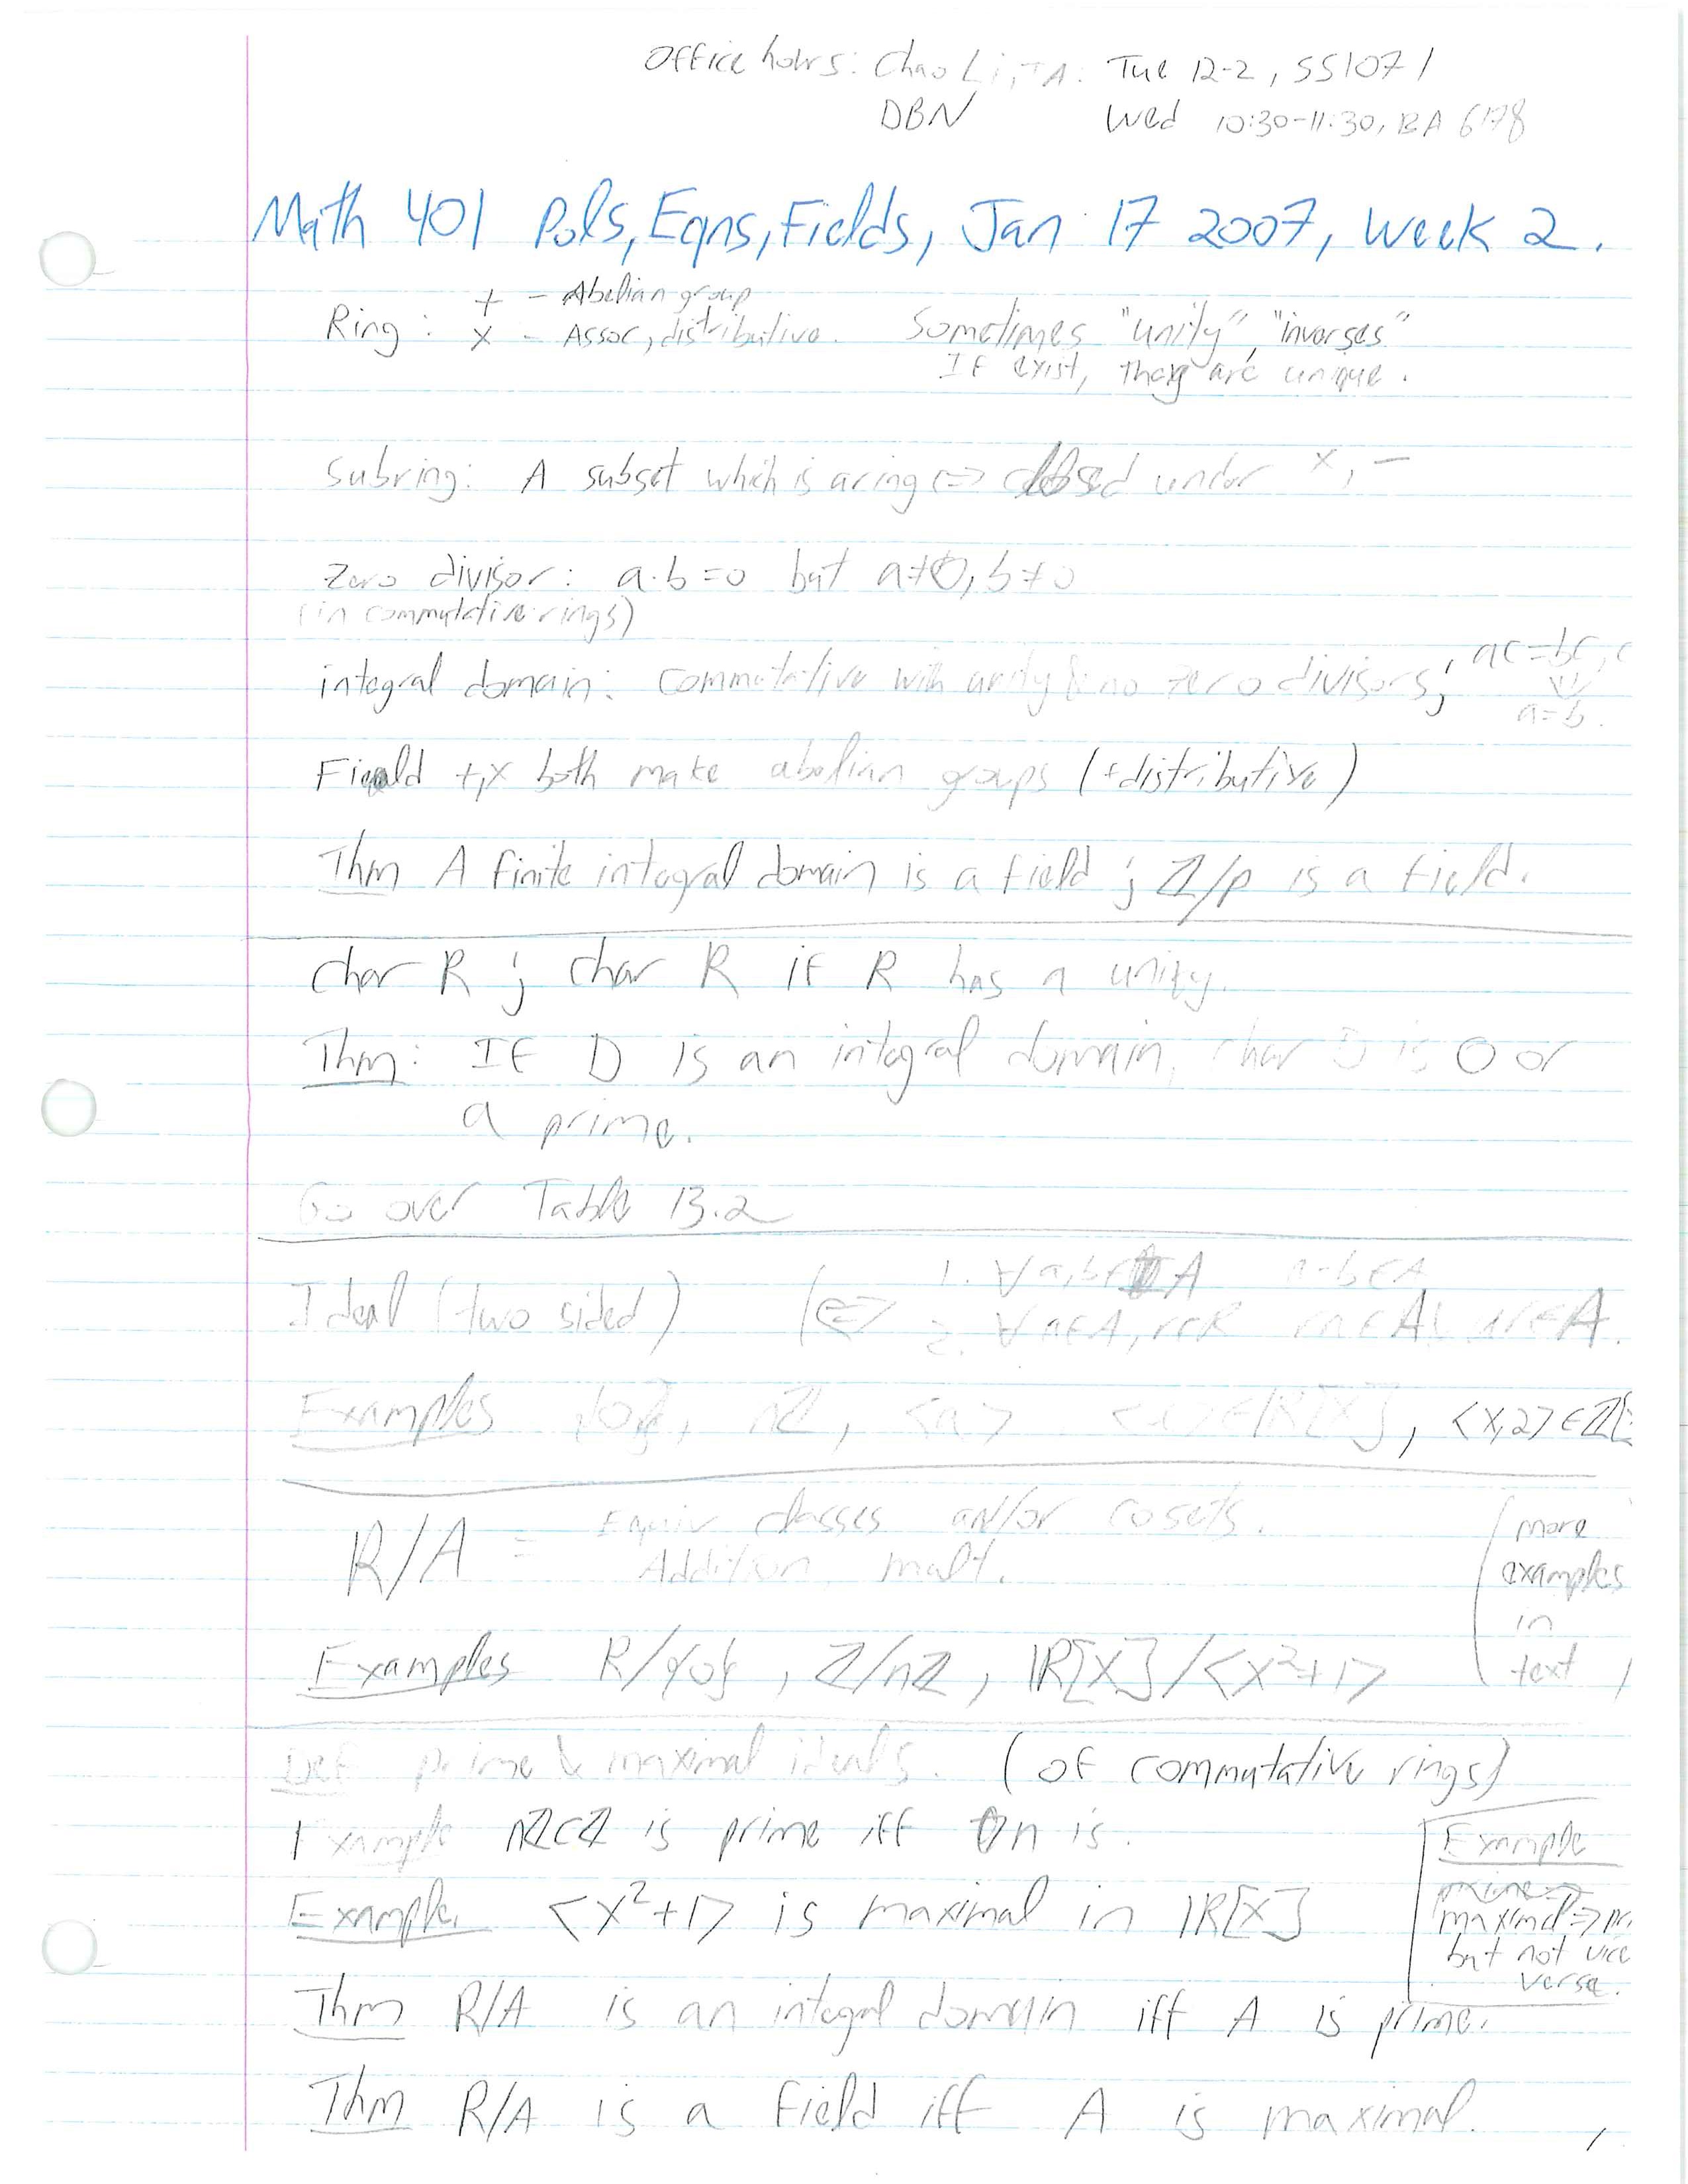 Office hours: Chao Li, TA: Tue 12-2, SS1071
DBN Wed 10:30-11:30, BA 6178
Math 401 Pols, Eqns, Fields, Jan 17 2007, Week 2.
Ring: + - Abelian group
x - Assoc, distributive. Sometimes "unity", "inverses"
If exist, they are unique.
Subring: A subset which is a ring <=> closed under x, -
Zero divisor: a·b=0 but a≠0, b≠0
(in commutative rings)
integral domain: commutative with unity & no zero divisors; ac=bc, c
⇓
a=b.
Field +,x both make abelian groups (+distributive)
Thm A finite integral domain is a field; ℤ/p is a field.
char R; char R if R has a unity.
Thm: If D is an integral domain, char D is 0 or
a prime.
Go over Table 13.2
Ideal (two sided) (<=> 1. ∀a,b∈A a-b∈A
2. ∀a∈A, r∈R ra∈A, ar∈A.
Examples {0}, nℤ, <a> <x>∈ℝ[X], <x,2>∈ℤ[
R/A = Equiv classes and/or cosets.
Addition, mult.
(more
examples
in
text
Examples R/{0}, ℤ/nℤ, ℝ[X]/<X²+1>
Def prime & maximal ideals. (of commutative rings)
Example nℤ⊂ℤ is prime iff n is.
Example <X²+1> is maximal in ℝ[X]
Example
maximal => pr
but not vice
versa.
Thm R/A is an integral domain iff A is prime.
Thm R/A is a field iff A is maximal.